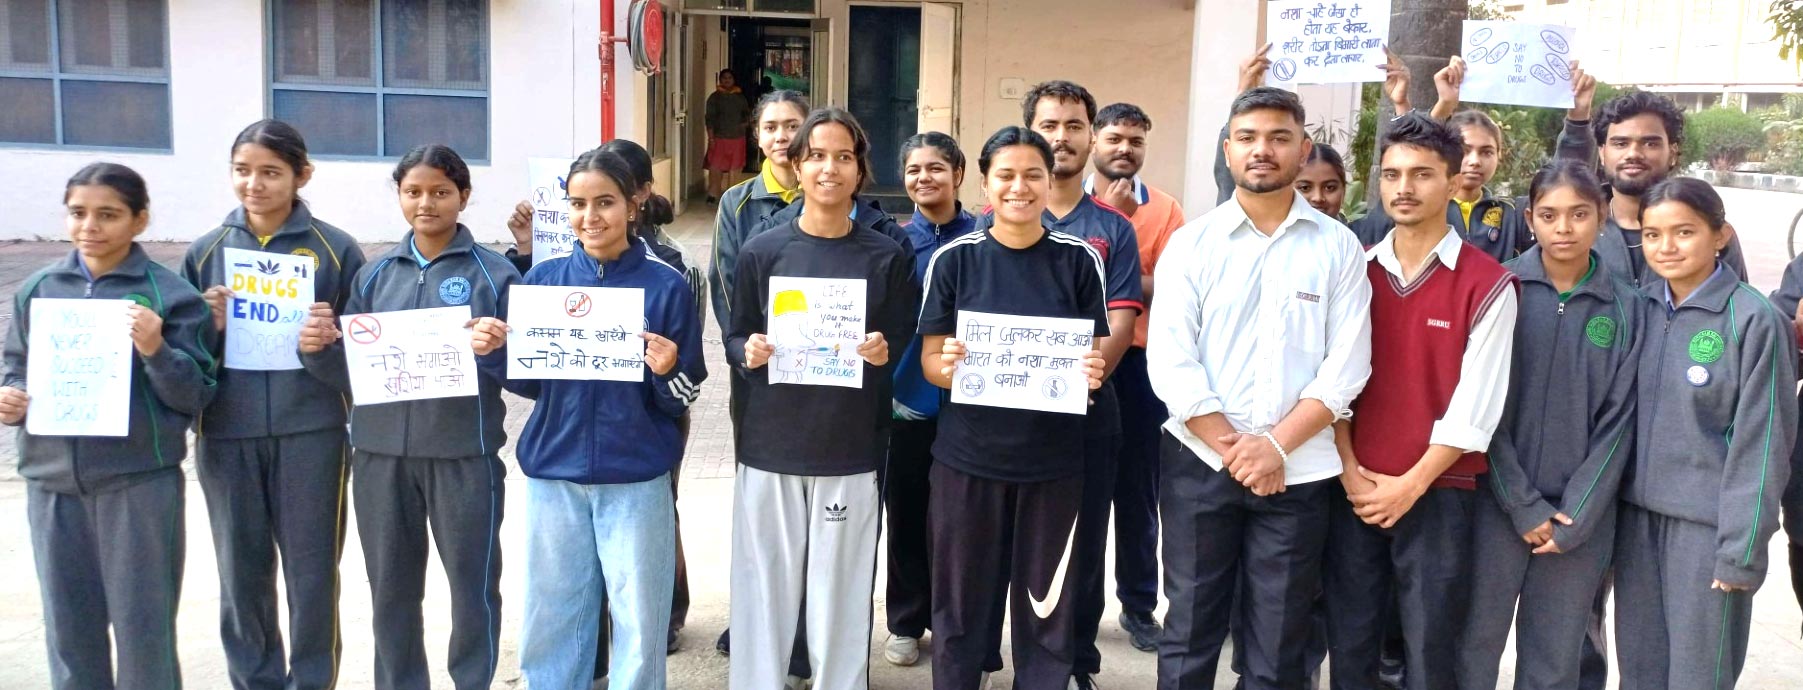 YOU'LL
NEVER
SUCCEED
WITH
DRUGS
DRUGS
END all
DREAMS
नशे भगाओ
खुशियां पाओ
नशा
मिलकर
कसम यह खाएँगे
नशे को दूर भगाएँगे
LIFE
is what
you make
it
DRUG FREE
SAY NO
TO DRUGS
adidas
मिल जुलकर सब आओ
भारत को नशा मुक्त
बनाओ
नशा चाहे जैसा हो
होता यह बेकार,
शरीर तोड़ता बिमारी लाता
कर देता लाचार,
SAY
NO
TO
DRUGS
DRUGS
SGRRU